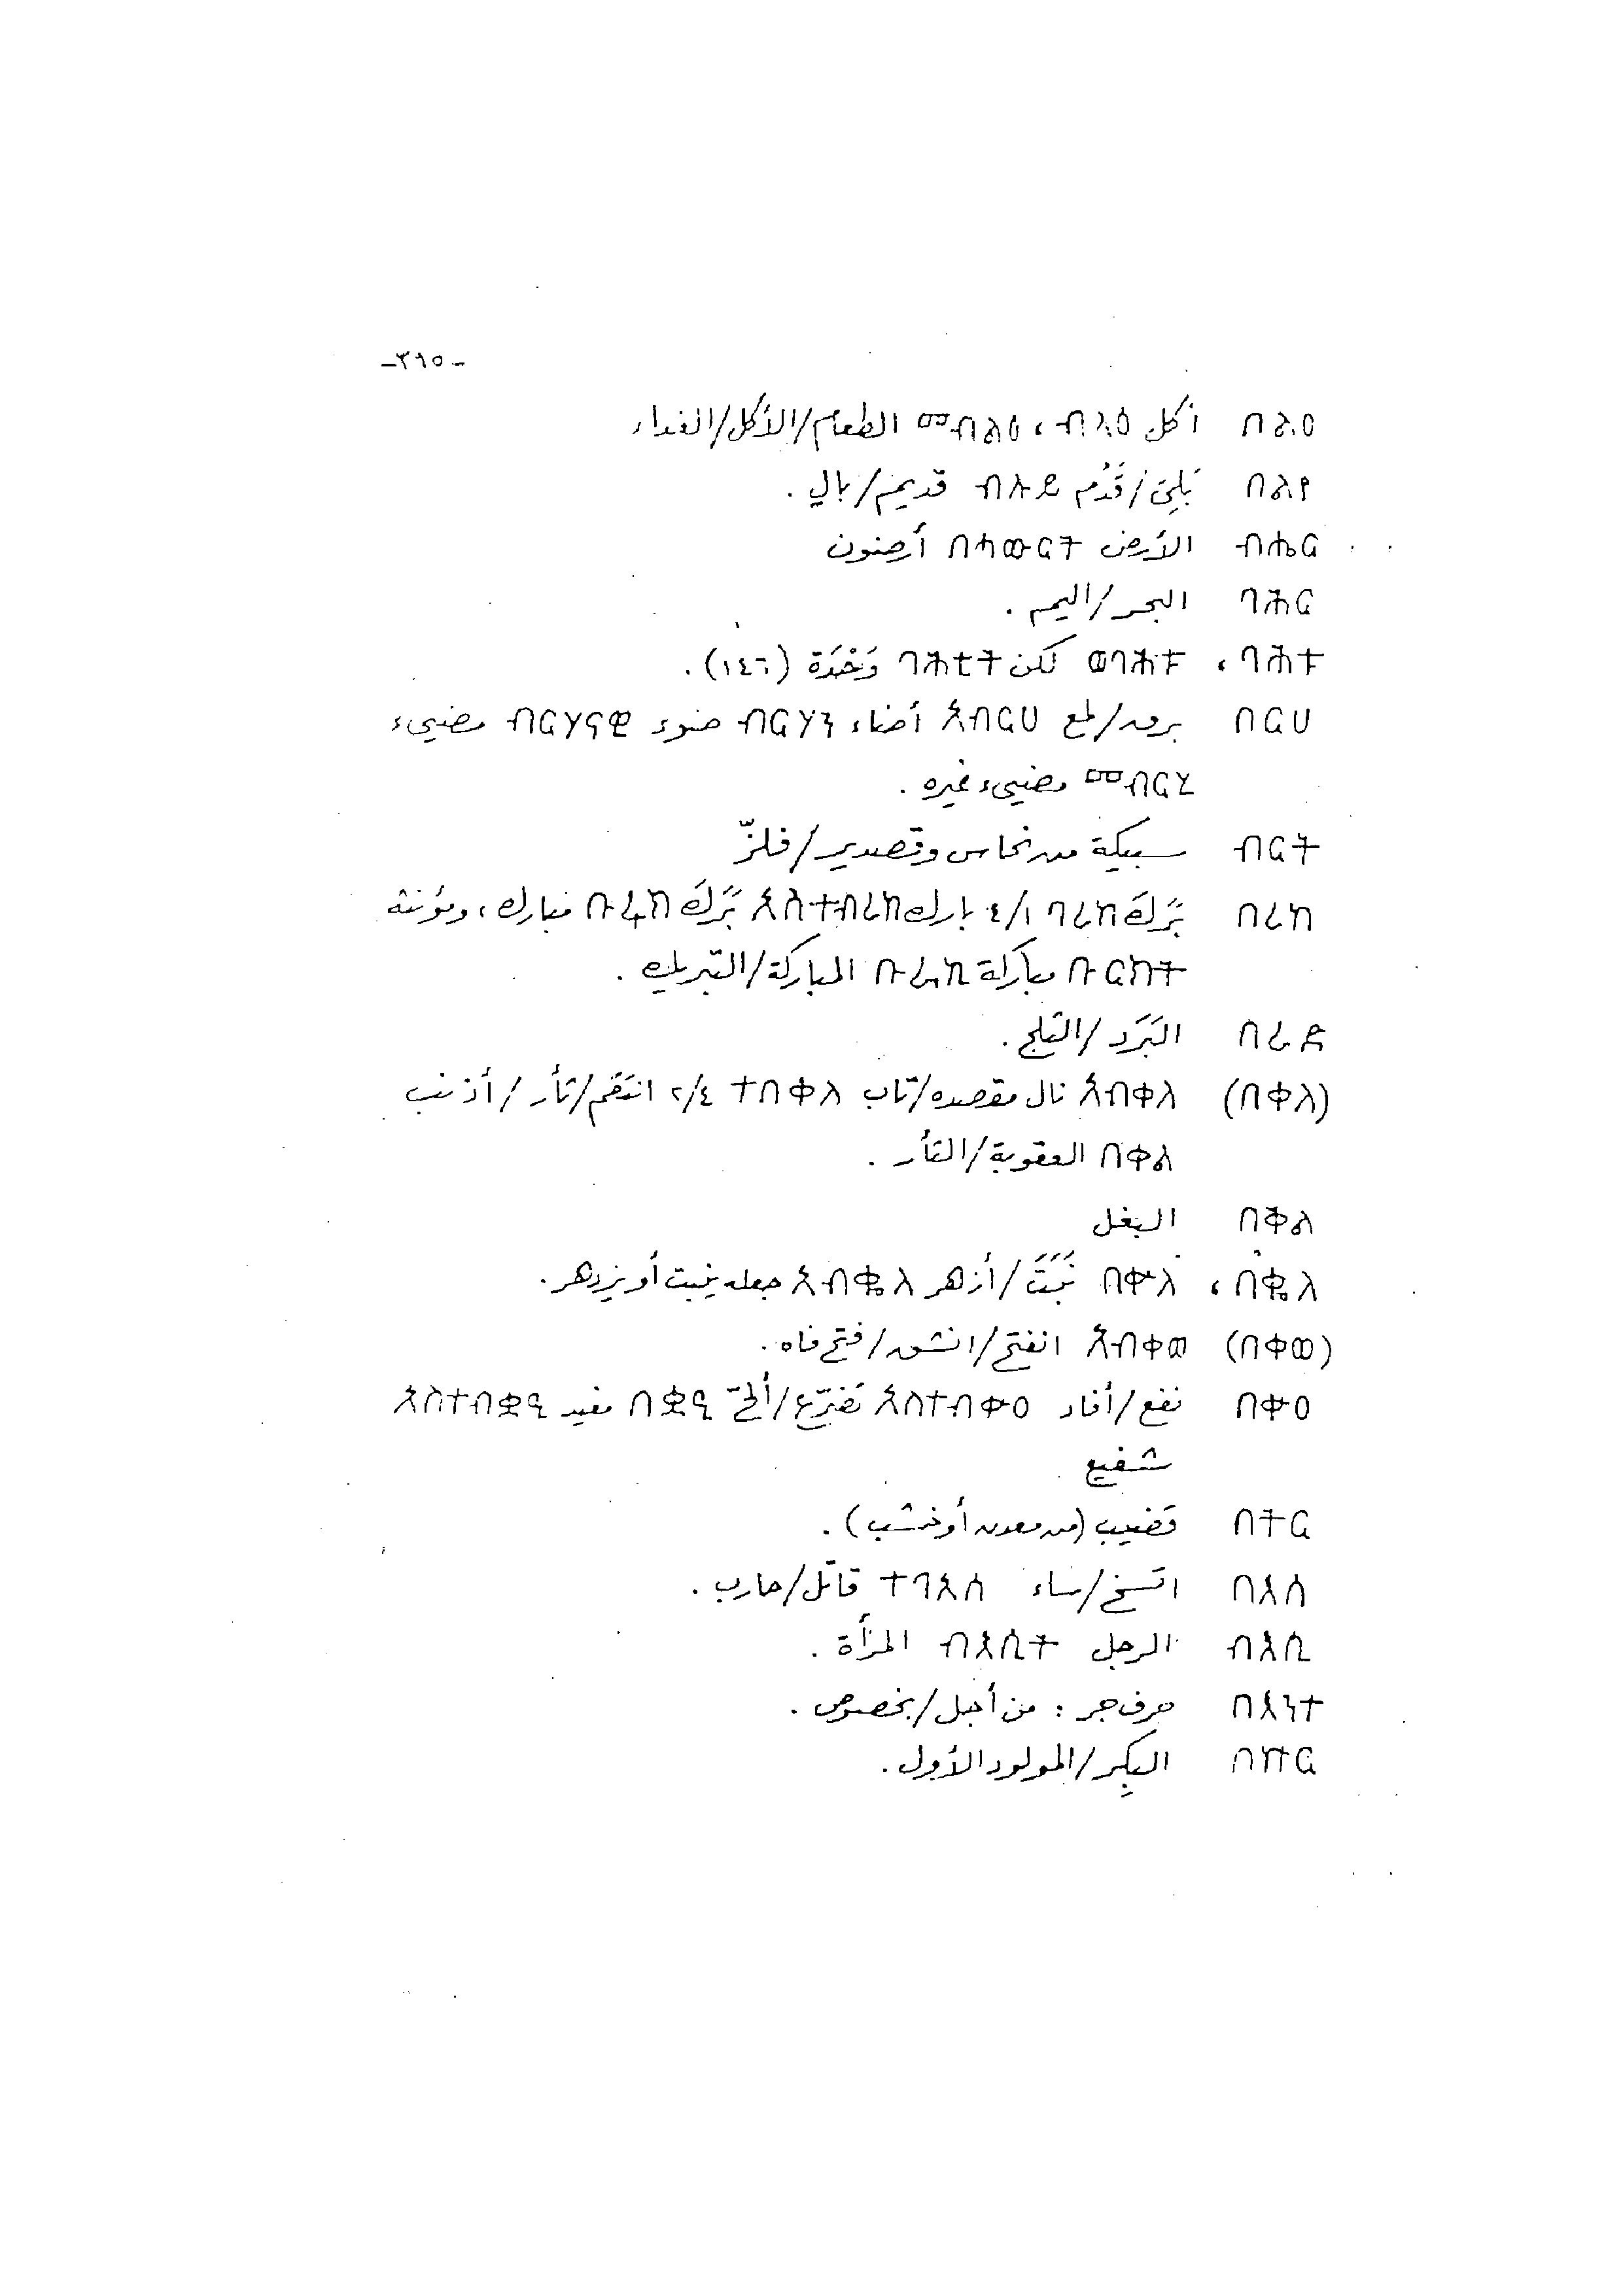 -٣١٥-
በልዐ أكل ብልዐ ، መብልዕ الطعام/الأكل/الغداء
በልየ بَلِيَ/قَدُم ብሉይ قديم/بالي .
ብሔር الأرض በሓውርት أرضون
ባሕር البحر/اليم .
ባሕት ، ወባሕቱ لكن ባሕቲት وَحْدَة (١٤٦) .
በርሀ برق/لمع አብርሀ أضاء ብርሃን ضوء ብርሃናዊ مضيىء
መብርሂ مضيىء غيره .
ብርት سبيكة من نحاس وقصدير/فلزّ
በረከ بَرَّكَ ባረከ ٤/١ بارك አስተብረከ بَرَّكَ ቡሩክ مبارك، ومؤنثه
ቡርክት مباركة ቡራኬ المباركة/التبريك .
በረድ البَرَد/الثلج .
(በቀለ) አብቀለ نال مقصده/تاب ተበቀለ ٢/٤ انتَقَم/ثأر/أذنب
በቀል العقوبة/الثأر .
በቅል البغل
በቈለ ، በቍለ نَبَتَ/أزهر አብቈለ جعله ينبت أو يزدهر.
(በቀወ) አብቀወ انفتح/انشق/فتح فاه.
በቍዐ نفع/أفاد አስተብቍዐ تَضَرّع/ألحّ በቋዒ مفيد አስተብቋዒ
شفيع
በትር قضيب (من معدن أو خشب) .
በአሰ اتسخ/ساء ተባአሰ قاتل/حارب .
ብእሲ الرجل ብእሲት المرأة .
በእንተ حرف جر : من أجل/بخصوص .
በኵር البكر/المولود الأول.